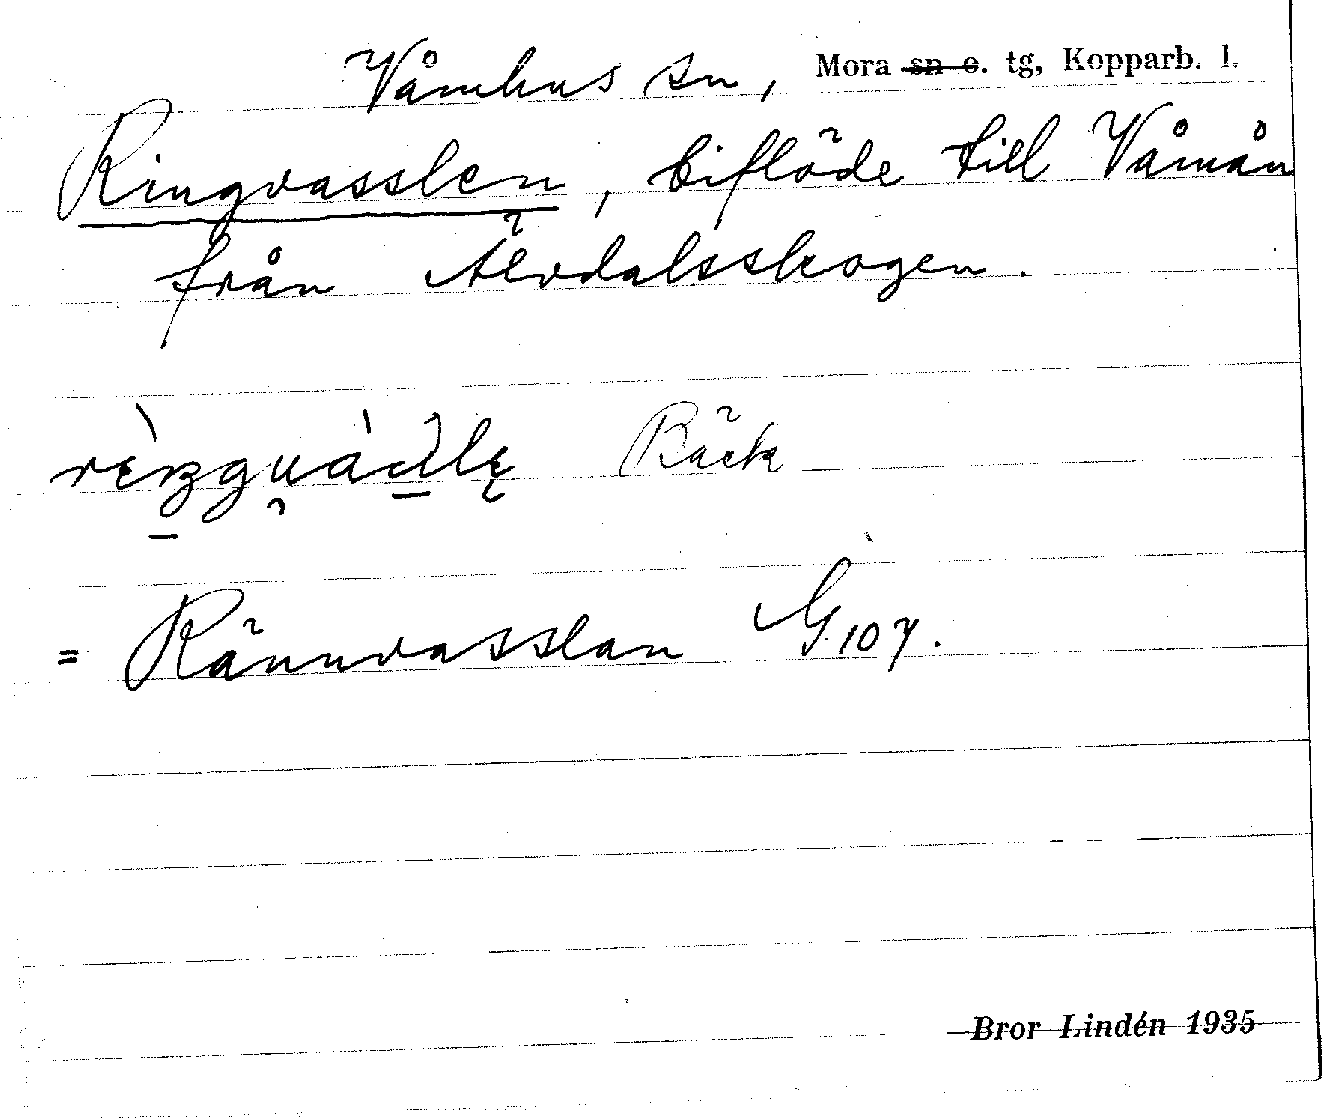 Våmhus sn, Mora sn o. tg, Kopparb. l.
Ringvasslen, biflöde till Våmån
från Älvdalsskogen.
Bäck
= Rännvasslan G 107.
Bror Lindén 1935